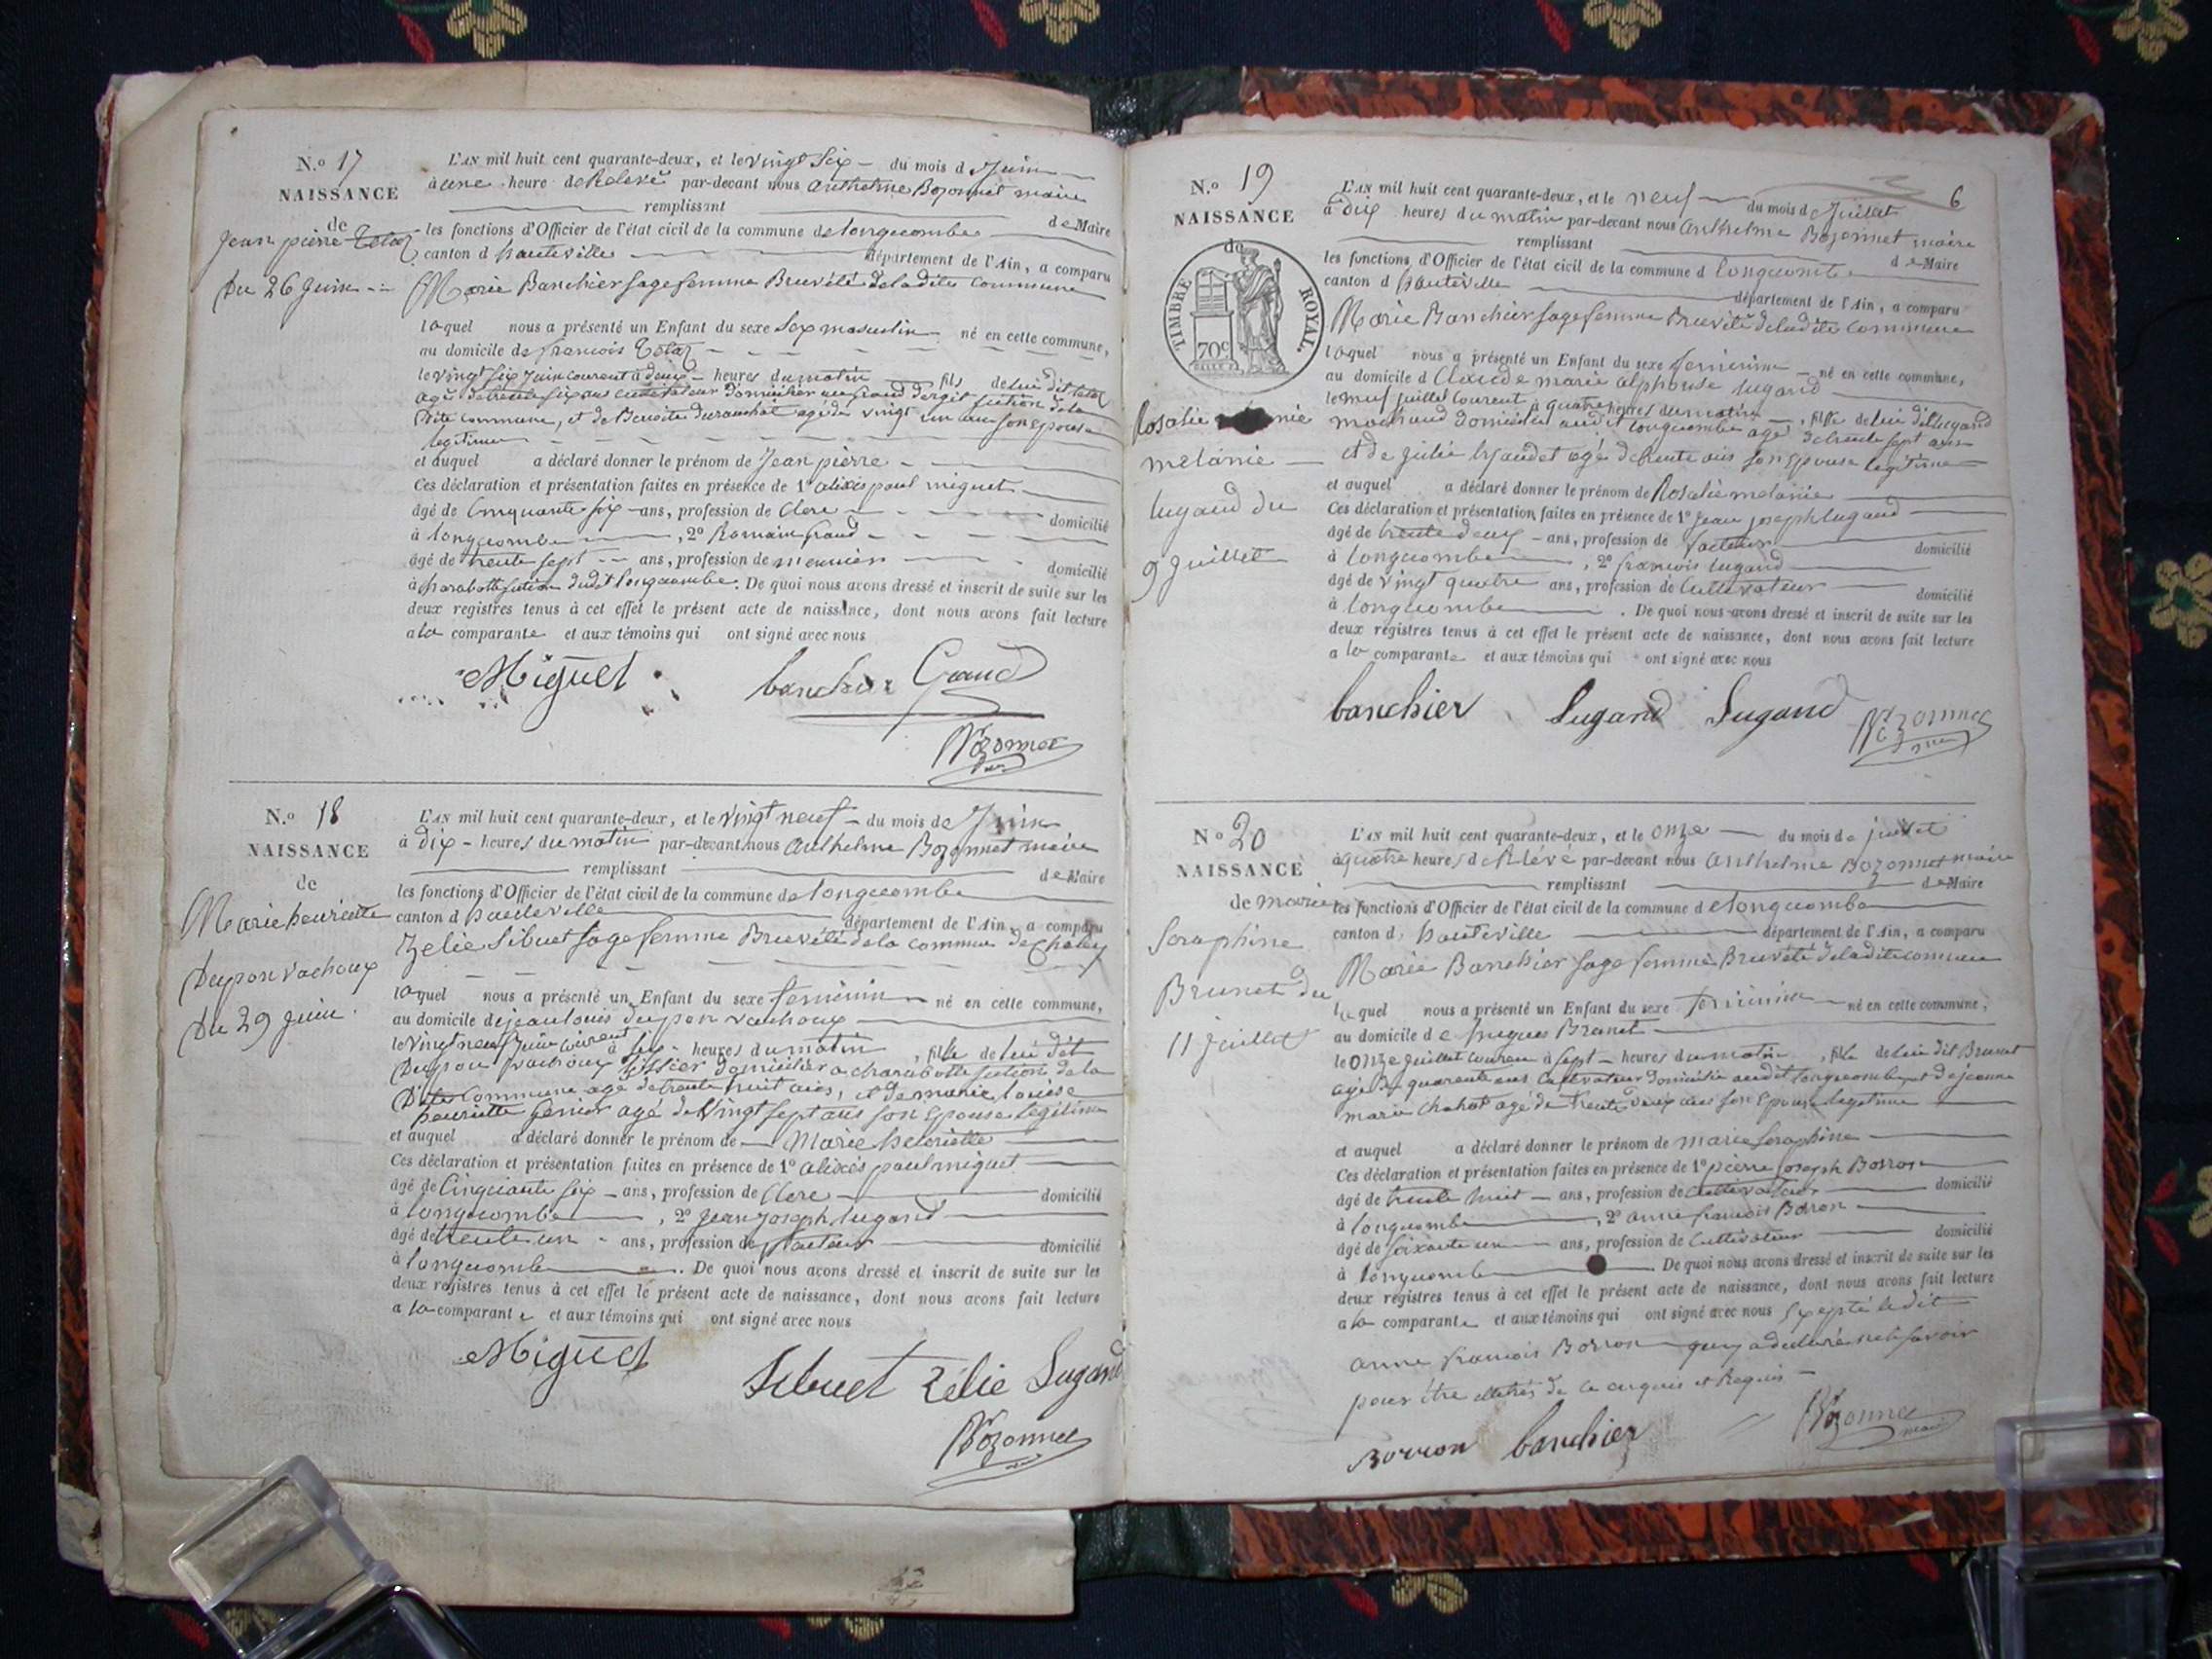 N.o 17
NAISSANCE
de
Jean pierre
Du 26 Juin
L'AN mil huit cent quarante-deux, et le vingt Six du mois d Juin
à une heure de Relevé par-devant nous Anthelme Bozonnet maire
remplissant de Maire
les fonctions d'Officier de l'état civil de la commune de longecombe
canton d hauteville département de l'Ain, a comparu
Marie Banchier sage femme Brevété de la dite commune
laquel nous a présenté un Enfant du sexe Sex masculin né en cette commune,
au domicile de francois
le vingt six Juin courent à deux heures du matin fils de lui dit
agé de trente six ans cultivateur domicilier au section de la
dite commune, et de Benoite agé de vingt un ans son epouse
legitime
et auquel a déclaré donner le prénom de Jean pierre
Ces déclaration et présentation faites en présence de 1° alixis paul miguet
âgé de Cinquante six ans, profession de Clerc domicilié
à longecombe , 2° Romain Gaud
âgé de trente sept ans, profession de meunier domicilié
à section dudit longecombe. De quoi nous avons dressé et inscrit de suite sur les
deux registres tenus à cet effet le présent acte de naissance, dont nous avons fait lecture
a la comparante et aux témoins qui ont signé avec nous
Miguet banchier Gaud
Bozonnet
N.o 18
NAISSANCE
de
Marie henriette
Dupon vachoux
Du 29 Juin.
L'AN mil huit cent quarante-deux, et le vingt neuf du mois de Juin
à dix heures du matin par-devant nous Anthelme Bozonnet maire
remplissant de Maire
les fonctions d'Officier de l'état civil de la commune de longecombe
canton d hauteville département de l'Ain, a comparu
Zelie Sibuet sage femme Brevété de la commune de Chaley
laquel nous a présenté un Enfant du sexe feminin né en cette commune,
au domicile de jean louis dupon vachoux
le vingt neuf Juin courent à six heures du matin , fille de lui dit
Dupon vachoux domicilier a section de la
Dite Commune agé de trente huit ans, et de marie louise
henriette agé de vingt sept ans son Epouse legitime
et auquel a déclaré donner le prénom de Marie henriette
Ces déclaration et présentation faites en présence de 1° alixis paul miguet
âgé de Cinquante six ans, profession de Clerc domicilié
à longecombe , 2° Jean Joseph lugand
âgé de trente un ans, profession de facteur domicilié
à longecombe . De quoi nous avons dressé et inscrit de suite sur les
deux registres tenus à cet effet le présent acte de naissance, dont nous avons fait lecture
a la comparante et aux témoins qui ont signé avec nous
Miguet
Sibuet Zélie Lugand
Bozonnet
6
N.o 19
NAISSANCE
de
TIMBRE ROYAL.
70c
Rosalie
melanie
lugand du
9 Juillet
L'AN mil huit cent quarante-deux, et le neuf du mois de Juillet
à dix heures du matin par-devant nous Anthelme Bozonnet maire
remplissant de Maire
les fonctions d'Officier de l'état civil de la commune d longecombe
canton d hauteville département de l'Ain, a comparu
Marie Banchier sage femme Brevété de la dite Commune
laquel nous a présenté un Enfant du sexe feminin né en cette commune,
au domicile d Claude marie alphonse lugand
le neuf juillet courent à quatre heures du matin , fille de lui dit lugand
marchand domicilier audit longecombe agé de trente sept ans
et de julie agé de trente ans son epouse legitime
et auquel a déclaré donner le prénom de Rosalie melanie
Ces déclaration et présentation faites en présence de 1° Jean joseph lugand
âgé de trente deux ans, profession de facteur domicilié
à longecombe , 2° francois lugand
âgé de vingt quatre ans, profession de Cultivateur domicilié
à longecombe . De quoi nous avons dressé et inscrit de suite sur les
deux registres tenus à cet effet le présent acte de naissance, dont nous avons fait lecture
a la comparante et aux témoins qui ont signé avec nous
banchier Lugand Lugand Bozonnet
N.o 20
NAISSANCE
de marie
Seraphine
Brunet du
11 Juillet
L'AN mil huit cent quarante-deux, et le onze du mois de juillet
à quatre heures de Relévé par-devant nous Anthelme Bozonnet maire
remplissant de Maire
les fonctions d'Officier de l'état civil de la commune de longecombe
canton d hauteville département de l'Ain, a comparu
Marie Banchier sage femme Brevété de la dite commune
laquel nous a présenté un Enfant du sexe feminin né en cette commune,
au domicile de Brunet
le onze Juillet courent à sept heures du matin , fille de lui dit Brunet
agé de quarente ans cultivateur domicilie audit longecombe et de jeanne
marie Chahat agé de trente deux ans son Epouse legitime
et auquel a déclaré donner le prénom de marie Seraphine
Ces déclaration et présentation faites en présence de 1° pierre Joseph Borron
âgé de trente huit ans, profession de cultivateur domicilié
à longecombe , 2° anne francois Borron
âgé de soixante un ans, profession de Cultivateur domicilié
à longecombe De quoi nous avons dressé et inscrit de suite sur les
deux registres tenus à cet effet le présent acte de naissance, dont nous avons fait lecture
a la comparante et aux témoins qui ont signé avec nous Exepté ledit
anne francois Borron quy a declaré ne le savoir
pour être de ce enquis et Requis
Borron banchier Bozonnet